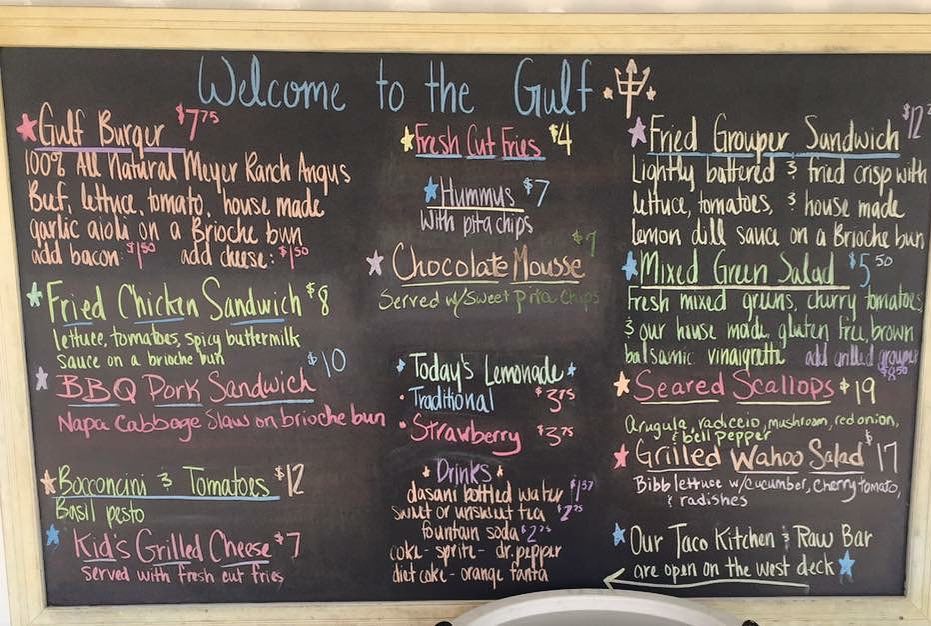 Welcome to the Gulf
Gulf Burger $7.75
100% All Natural Meyer Ranch Angus
Beef, lettuce, tomato, house made
garlic aioli on a Brioche bun
add bacon: $1.50 add cheese: $1.50
Fried Chicken Sandwich $8
lettuce, tomatoes, spicy buttermilk
sauce on a brioche bun
BBQ Pork Sandwich $10
Napa Cabbage Slaw on brioche bun
Bocconcini & Tomatoes $12
Basil pesto
Kid's Grilled Cheese $7
served with fresh cut fries
Fresh Cut Fries $4
Hummus $7
with pita chips
Chocolate Mousse $7
Served w/Sweet Pita Chips
Today's Lemonade
Traditional $3.75
Strawberry $3.75
Drinks
dasani bottled water $1.87
sweet or unsweet tea $2.75
fountain soda $2.75
coke - sprite - dr. pepper
diet coke - orange fanta
Fried Grouper Sandwich $12
Lightly battered & fried crisp with
lettuce, tomatoes, & house made
lemon dill sauce on a Brioche bun
Mixed Green Salad $5.50
Fresh mixed greens, cherry tomatoes
& our house made gluten free brown
balsamic vinaigrette add grilled grouper
$8.50
Seared Scallops $19
Arugula, radiccio, mushroom, red onion,
& bell pepper
Grilled Wahoo Salad $17
Bibb lettuce w/cucumber, cherry tomato,
& radishes
Our Taco Kitchen & Raw Bar
are open on the west deck